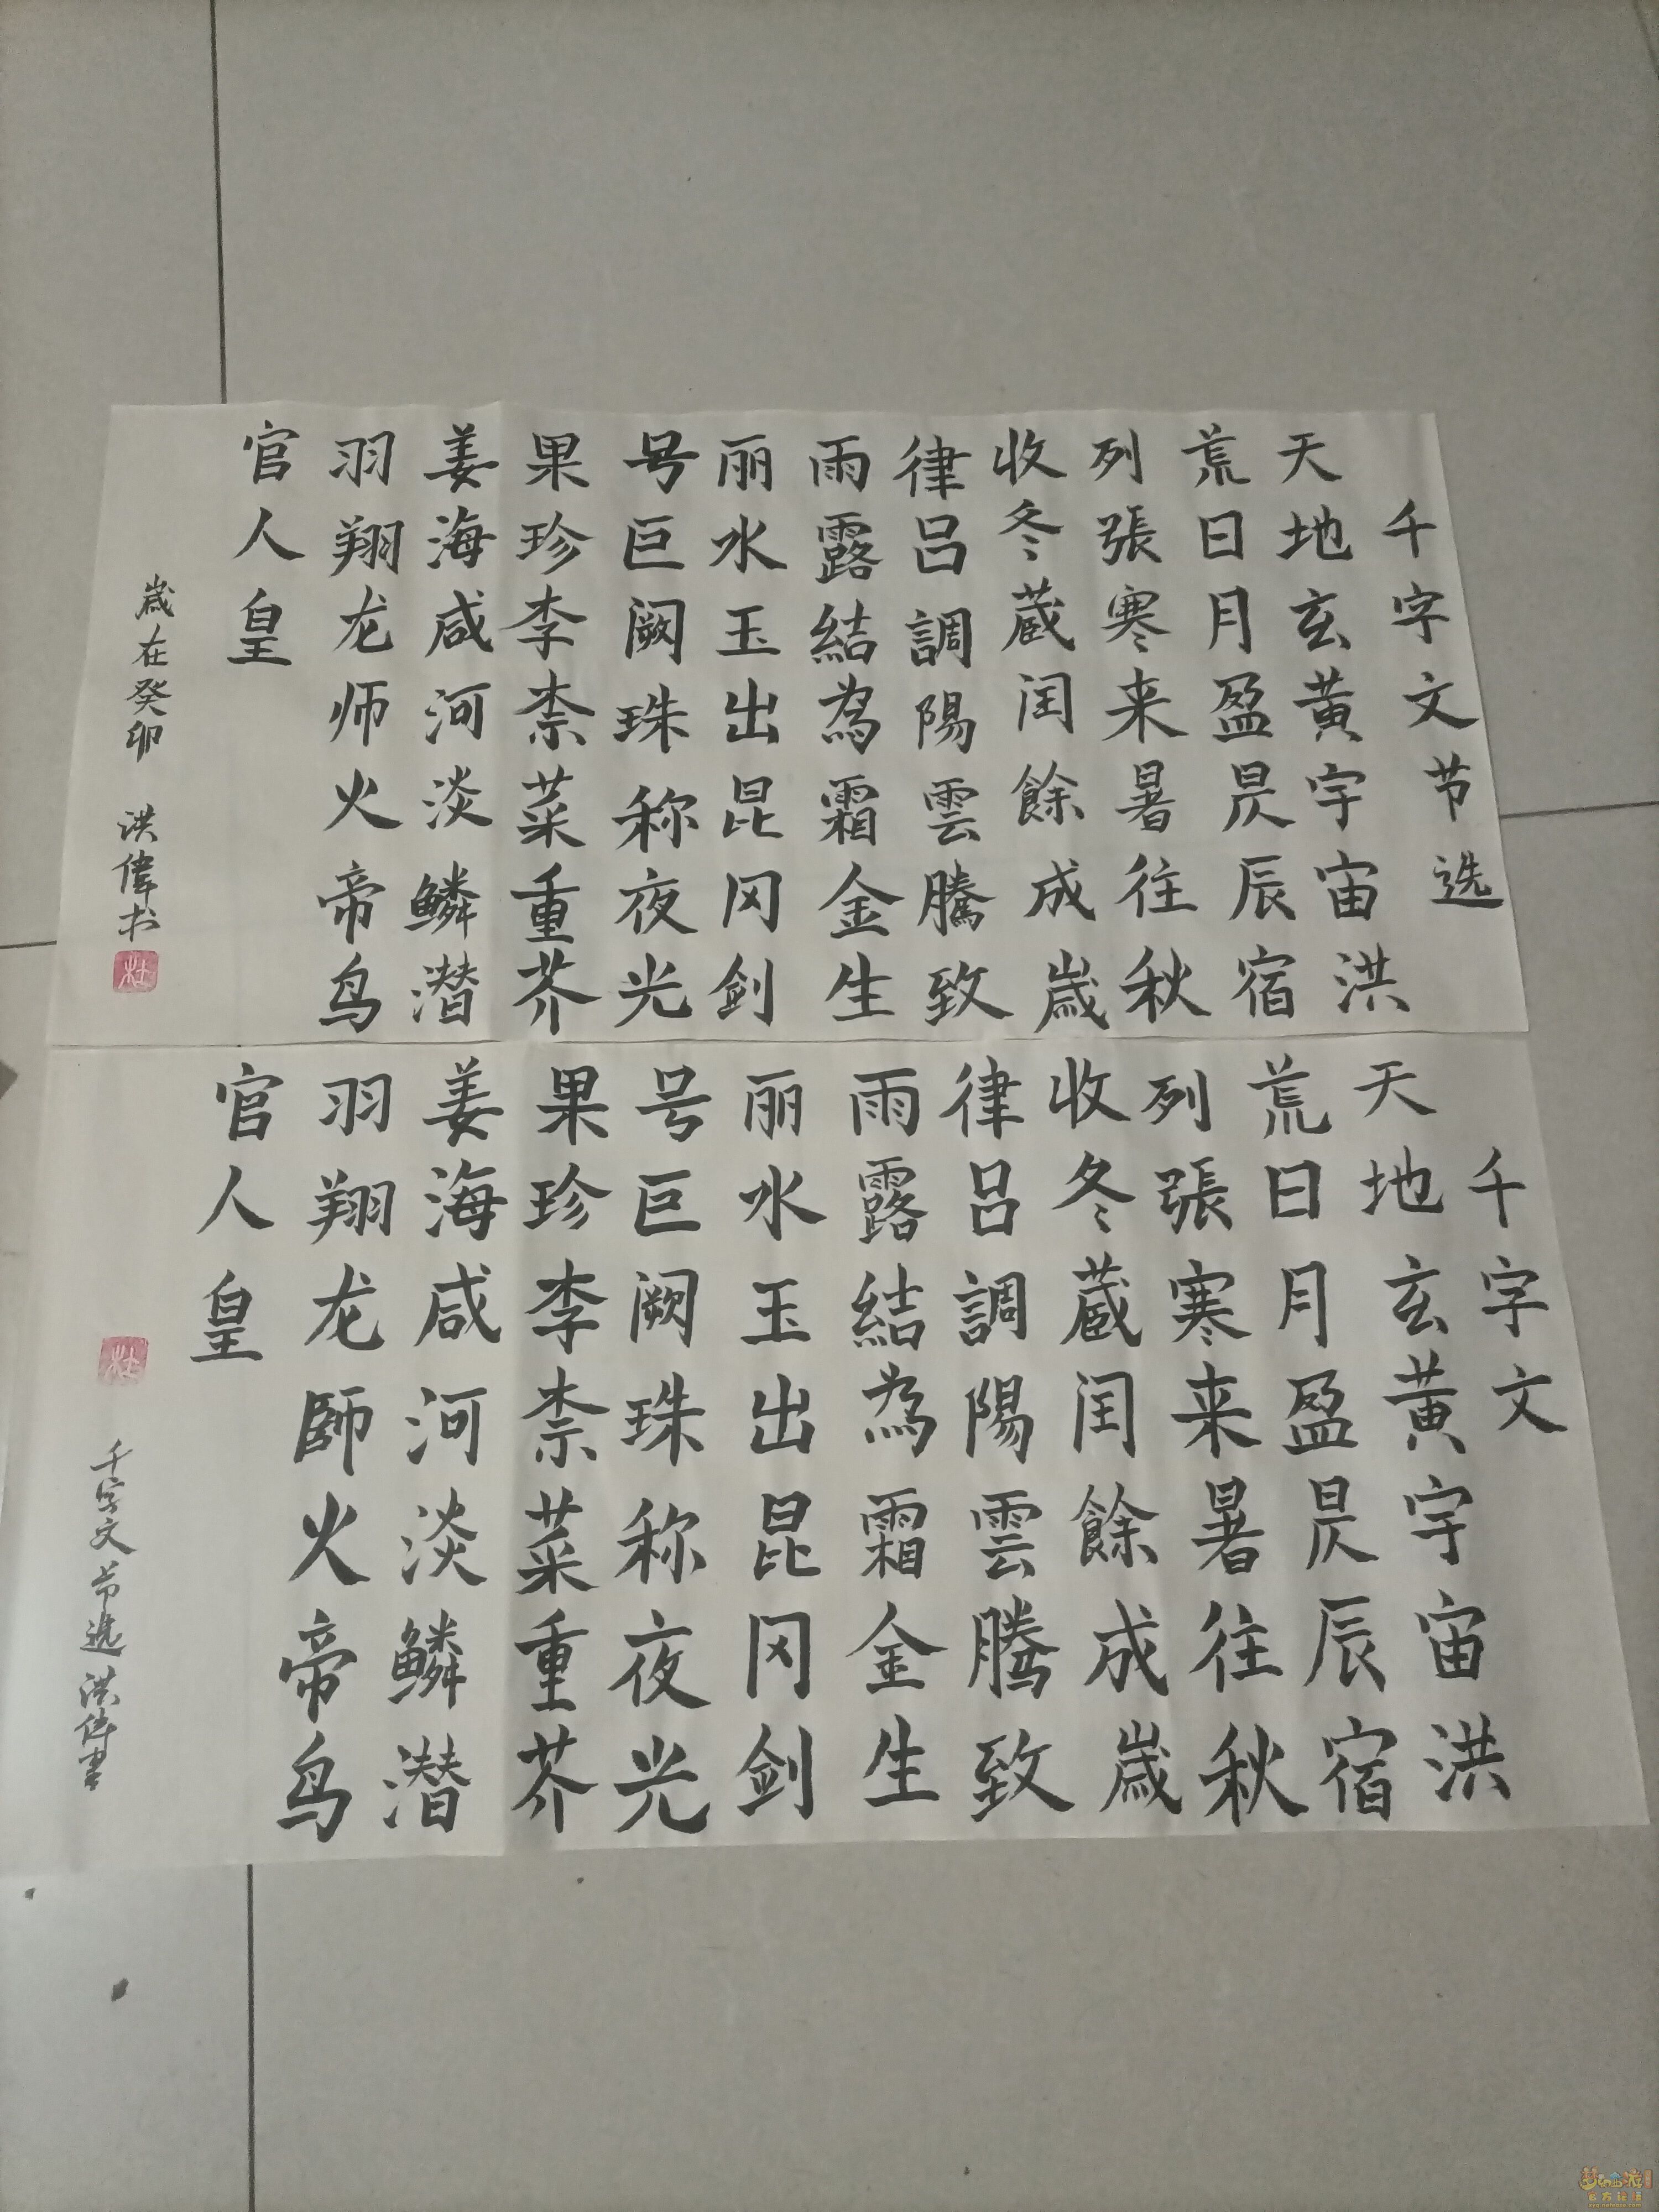 千字文节选
天地玄黄宇宙洪
荒日月盈昃辰宿
列張寒来暑往秋
收冬蔵闰餘成歳
律吕調陽雲騰致
雨露結為霜金生
丽水玉出昆冈剑
号巨阙珠称夜光
果珍李柰菜重芥
姜海咸河淡鳞潜
羽翔龙师火帝鸟
官人皇
歳在癸卯 洪偉书
杜
千字文
天地玄黄宇宙洪
荒日月盈昃辰宿
列張寒来暑往秋
收冬蔵闰餘成歳
律吕調陽雲腾致
雨露結為霜金生
丽水玉出昆冈剑
号巨阙珠称夜光
果珍李柰菜重芥
姜海咸河淡鳞潜
羽翔龙師火帝鸟
官人皇
杜
千字文节选洪偉書
梦幻西游
官方论坛